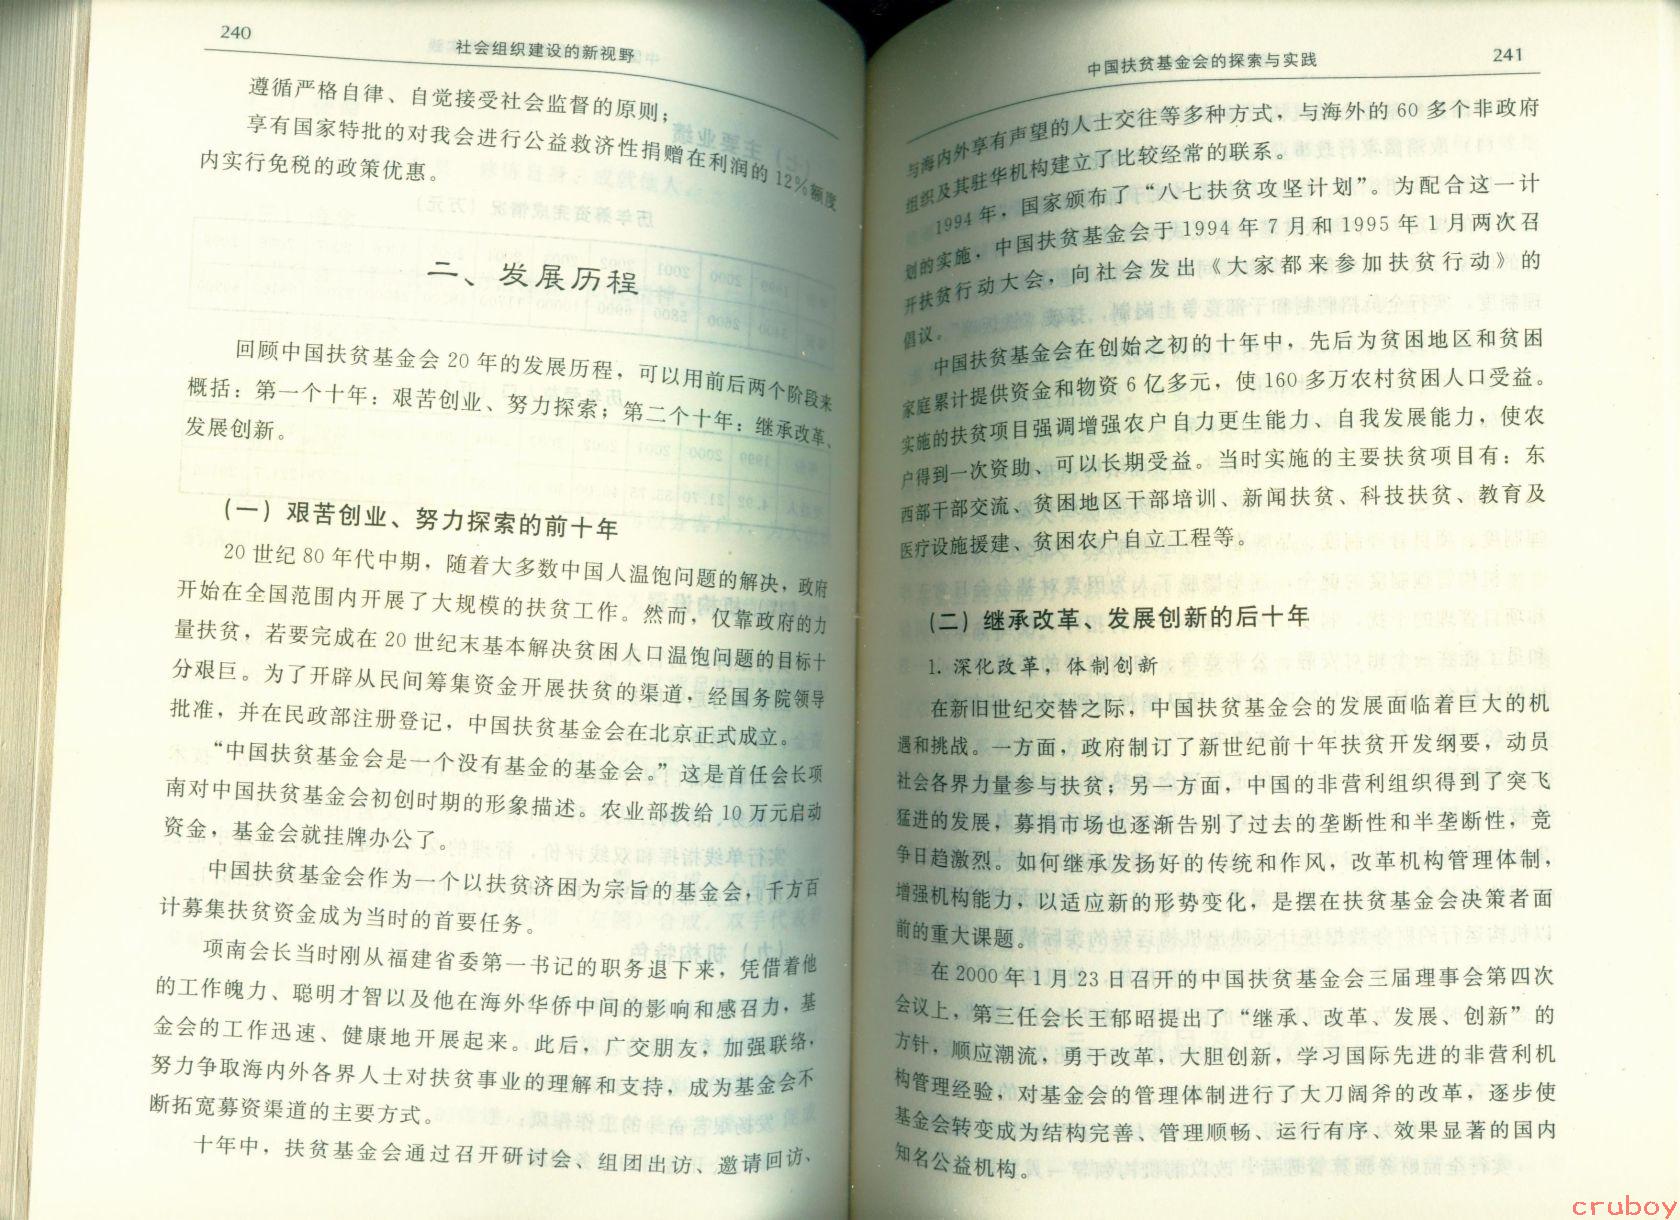 240
社会组织建设的新视野
遵循严格自律、自觉接受社会监督的原则；
享有国家特批的对我会进行公益救济性捐赠在利润的12%额度
内实行免税的政策优惠。
二、发展历程
回顾中国扶贫基金会20年的发展历程，可以用前后两个阶段来
概括：第一个十年：艰苦创业、努力探索；第二个十年：继承改革、
发展创新。
（一）艰苦创业、努力探索的前十年
20世纪80年代中期，随着大多数中国人温饱问题的解决，政府
开始在全国范围内开展了大规模的扶贫工作。然而，仅靠政府的力
量扶贫，若要完成在20世纪末基本解决贫困人口温饱问题的目标十
分艰巨。为了开辟从民间筹集资金开展扶贫的渠道，经国务院领导
批准，并在民政部注册登记，中国扶贫基金会在北京正式成立。
“中国扶贫基金会是一个没有基金的基金会。”这是首任会长项
南对中国扶贫基金会初创时期的形象描述。农业部拨给10万元启动
资金，基金会就挂牌办公了。
中国扶贫基金会作为一个以扶贫济困为宗旨的基金会，千方百
计募集扶贫资金成为当时的首要任务。
项南会长当时刚从福建省委第一书记的职务退下来，凭借着他
的工作魄力、聪明才智以及他在海外华侨中间的影响和感召力，基
金会的工作迅速、健康地开展起来。此后，广交朋友，加强联络，
努力争取海内外各界人士对扶贫事业的理解和支持，成为基金会不
断拓宽募资渠道的主要方式。
十年中，扶贫基金会通过召开研讨会、组团出访、邀请回访、
中国扶贫基金会的探索与实践
241
与海内外享有声望的人士交往等多种方式，与海外的60多个非政府
组织及其驻华机构建立了比较经常的联系。
1994年，国家颁布了“八七扶贫攻坚计划”。为配合这一计
划的实施，中国扶贫基金会于1994年7月和1995年1月两次召
开扶贫行动大会，向社会发出《大家都来参加扶贫行动》的
倡议。
中国扶贫基金会在创始之初的十年中，先后为贫困地区和贫困
家庭累计提供资金和物资6亿多元，使160多万农村贫困人口受益。
实施的扶贫项目强调增强农户自力更生能力、自我发展能力，使农
户得到一次资助、可以长期受益。当时实施的主要扶贫项目有：东
西部干部交流、贫困地区干部培训、新闻扶贫、科技扶贫、教育及
医疗设施援建、贫困农户自立工程等。
（二）继承改革、发展创新的后十年
1. 深化改革，体制创新
在新旧世纪交替之际，中国扶贫基金会的发展面临着巨大的机
遇和挑战。一方面，政府制订了新世纪前十年扶贫开发纲要，动员
社会各界力量参与扶贫；另一方面，中国的非营利组织得到了突飞
猛进的发展，募捐市场也逐渐告别了过去的垄断性和半垄断性，竞
争日趋激烈。如何继承发扬好的传统和作风，改革机构管理体制，
增强机构能力，以适应新的形势变化，是摆在扶贫基金会决策者面
前的重大课题。
在2000年1月23日召开的中国扶贫基金会三届理事会第四次
会议上，第三任会长王郁昭提出了“继承、改革、发展、创新”的
方针，顺应潮流，勇于改革，大胆创新，学习国际先进的非营利机
构管理经验，对基金会的管理体制进行了大刀阔斧的改革，逐步使
基金会转变成为结构完善、管理顺畅、运行有序、效果显著的国内
知名公益机构。
cruboy